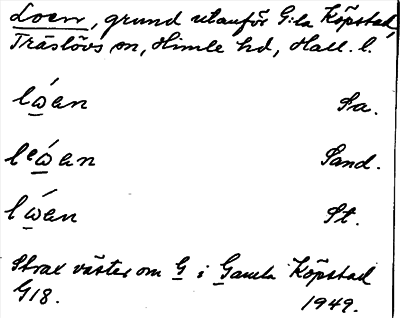 Loen, grund utanför G:la Köpstad,
Träslövs sn, Himle hd, Hall. l.
lώan Sa.
leώan Sand.
lώan St.
Strax väster om G i Gamla Köpstad
G18. 1949.